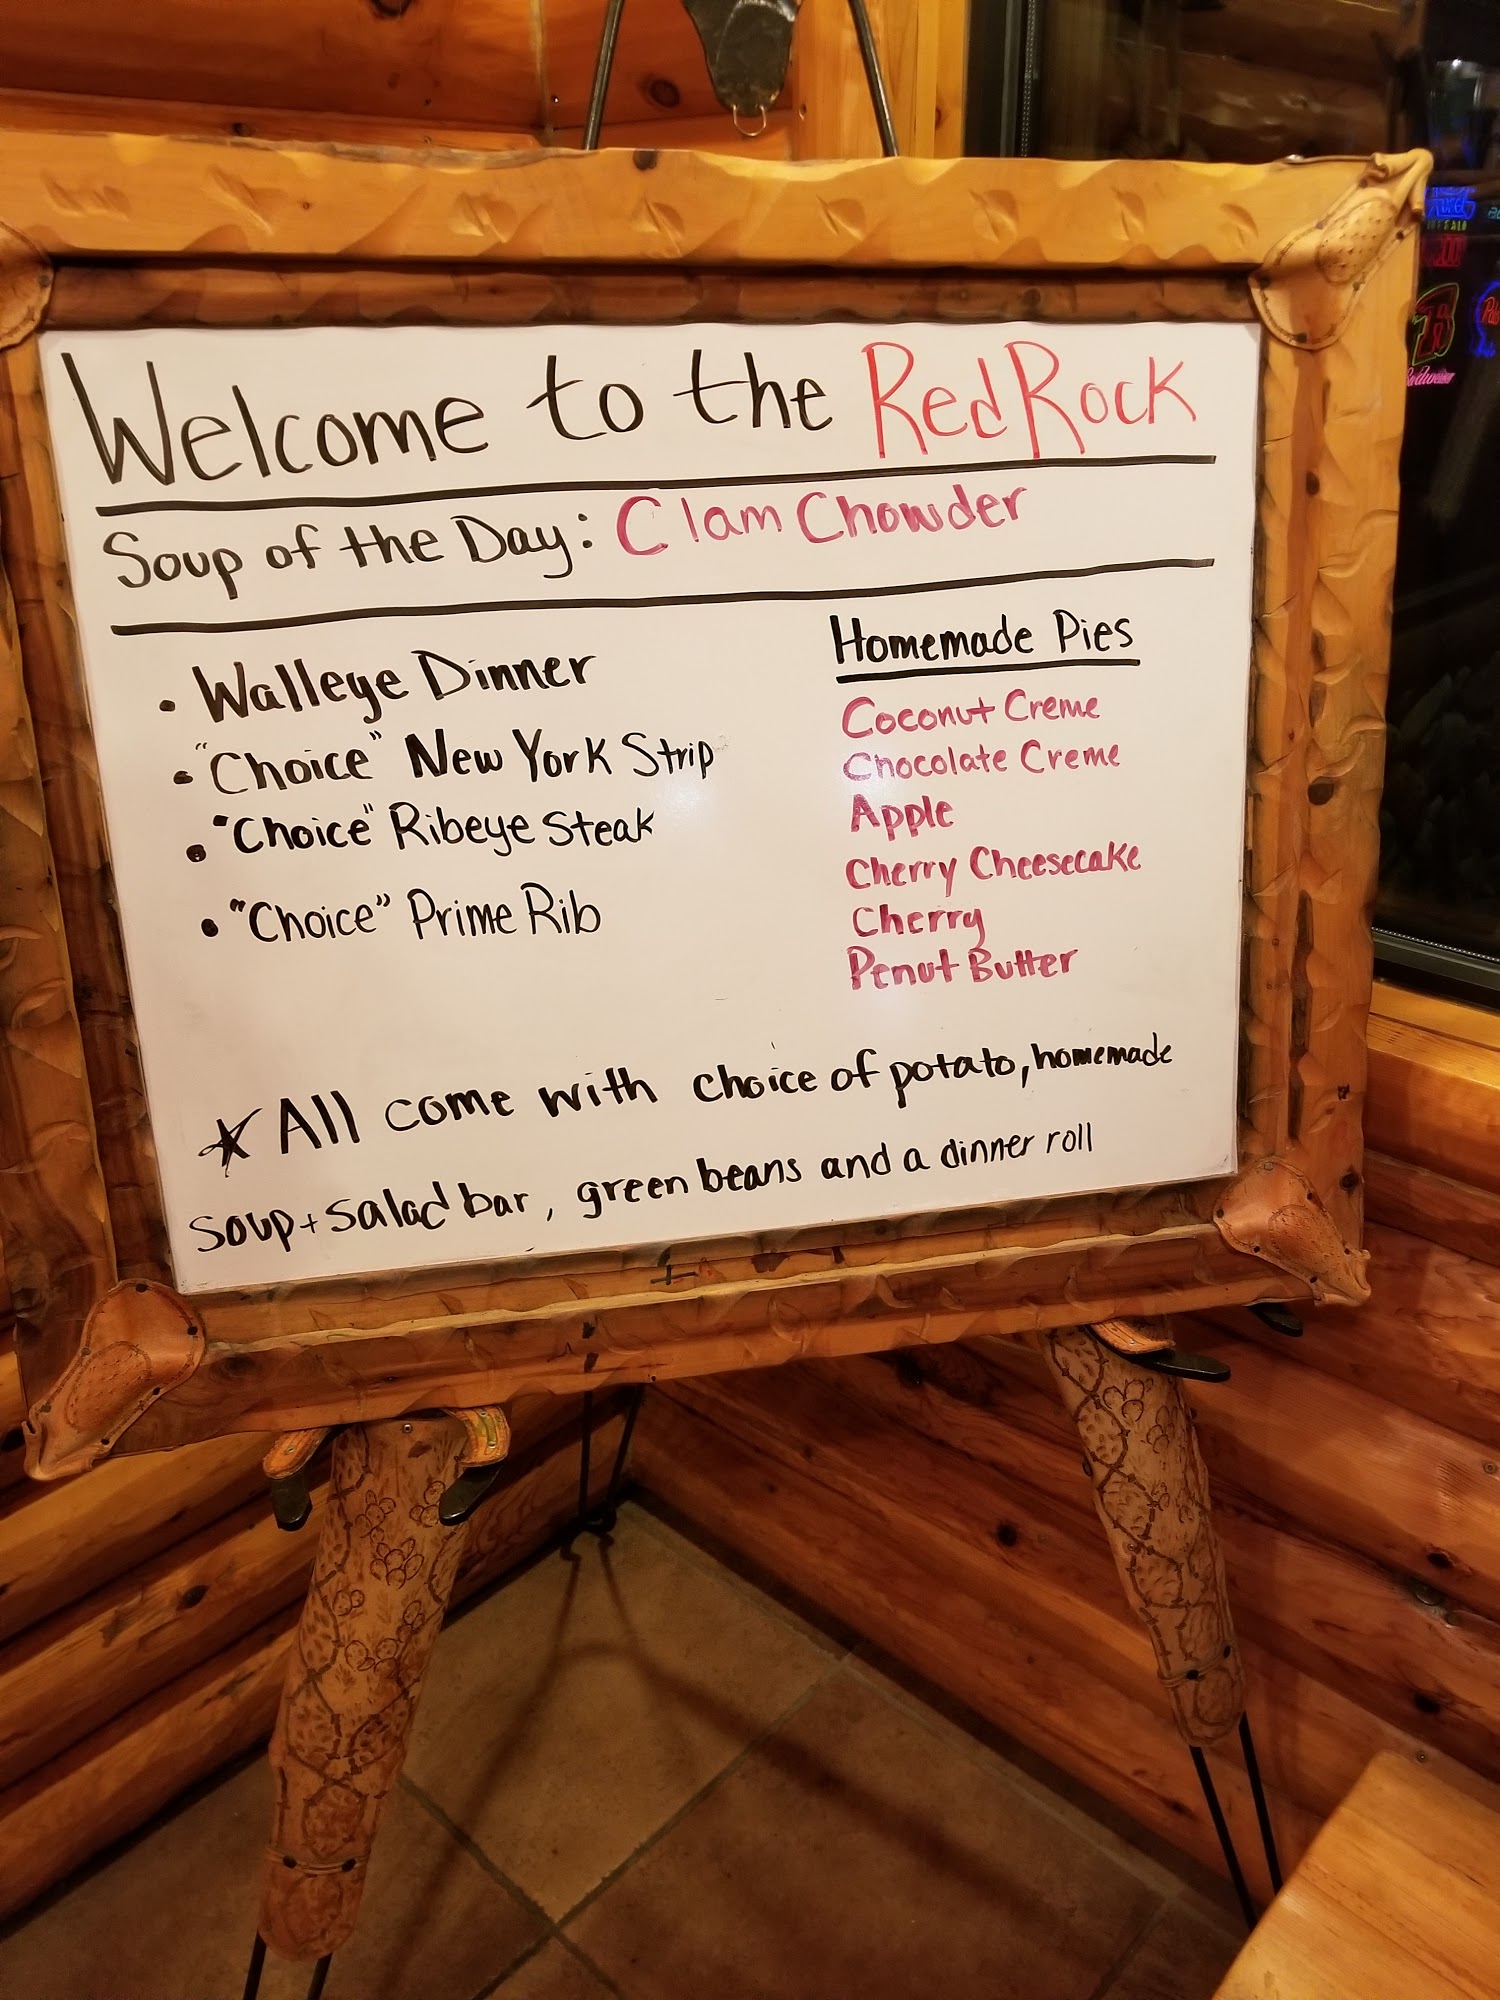 Welcome to the Red Rock
Soup of the Day: Clam Chowder
• Walleye Dinner
• "Choice" New York Strip
• "Choice" Ribeye Steak
• "Choice" Prime Rib
Homemade Pies
Coconut Creme
Chocolate Creme
Apple
Cherry Cheesecake
Cherry
Penut Butter
★ All come with choice of potato, homemade
soup + salad bar, green beans and a dinner roll
Budweiser